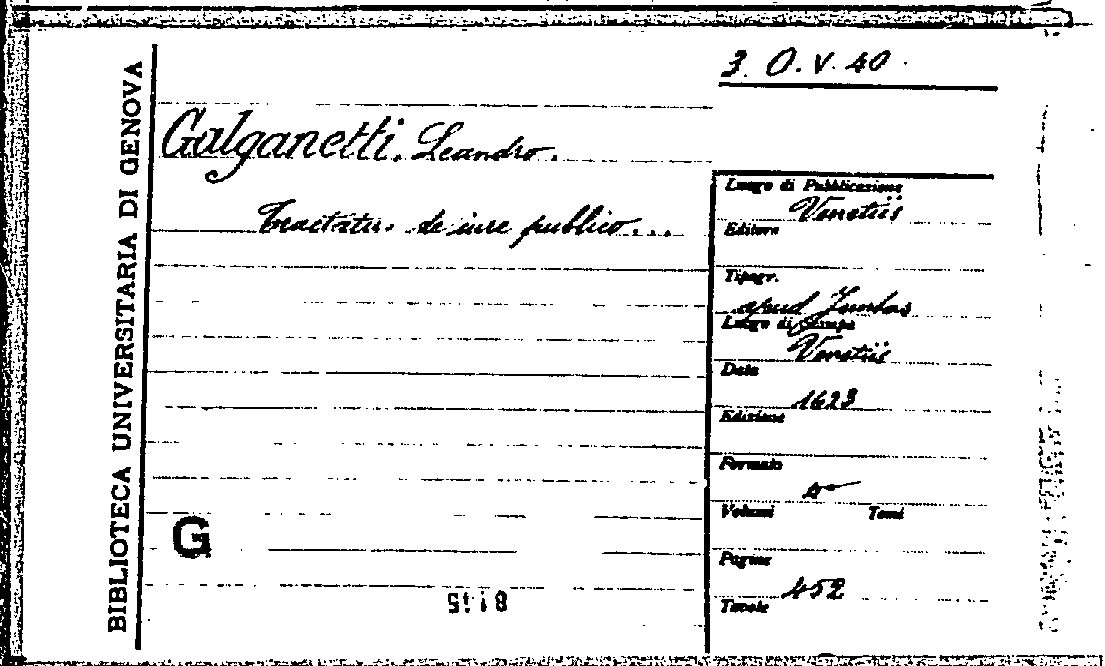 BIBLIOTECA UNIVERSITARIA DI GENOVA
3. O. V. 40.
Galganetti, Leandro.
Tractatus de iure publico...
Luogo di Pubblicazione
Venetiis
Editore
Tipogr.
apud Juntas
Luogo di Stampa
Venetiis
Data
1623
Edizione
Formato
Volumi Tomi
Pagine
452
Tavole
G